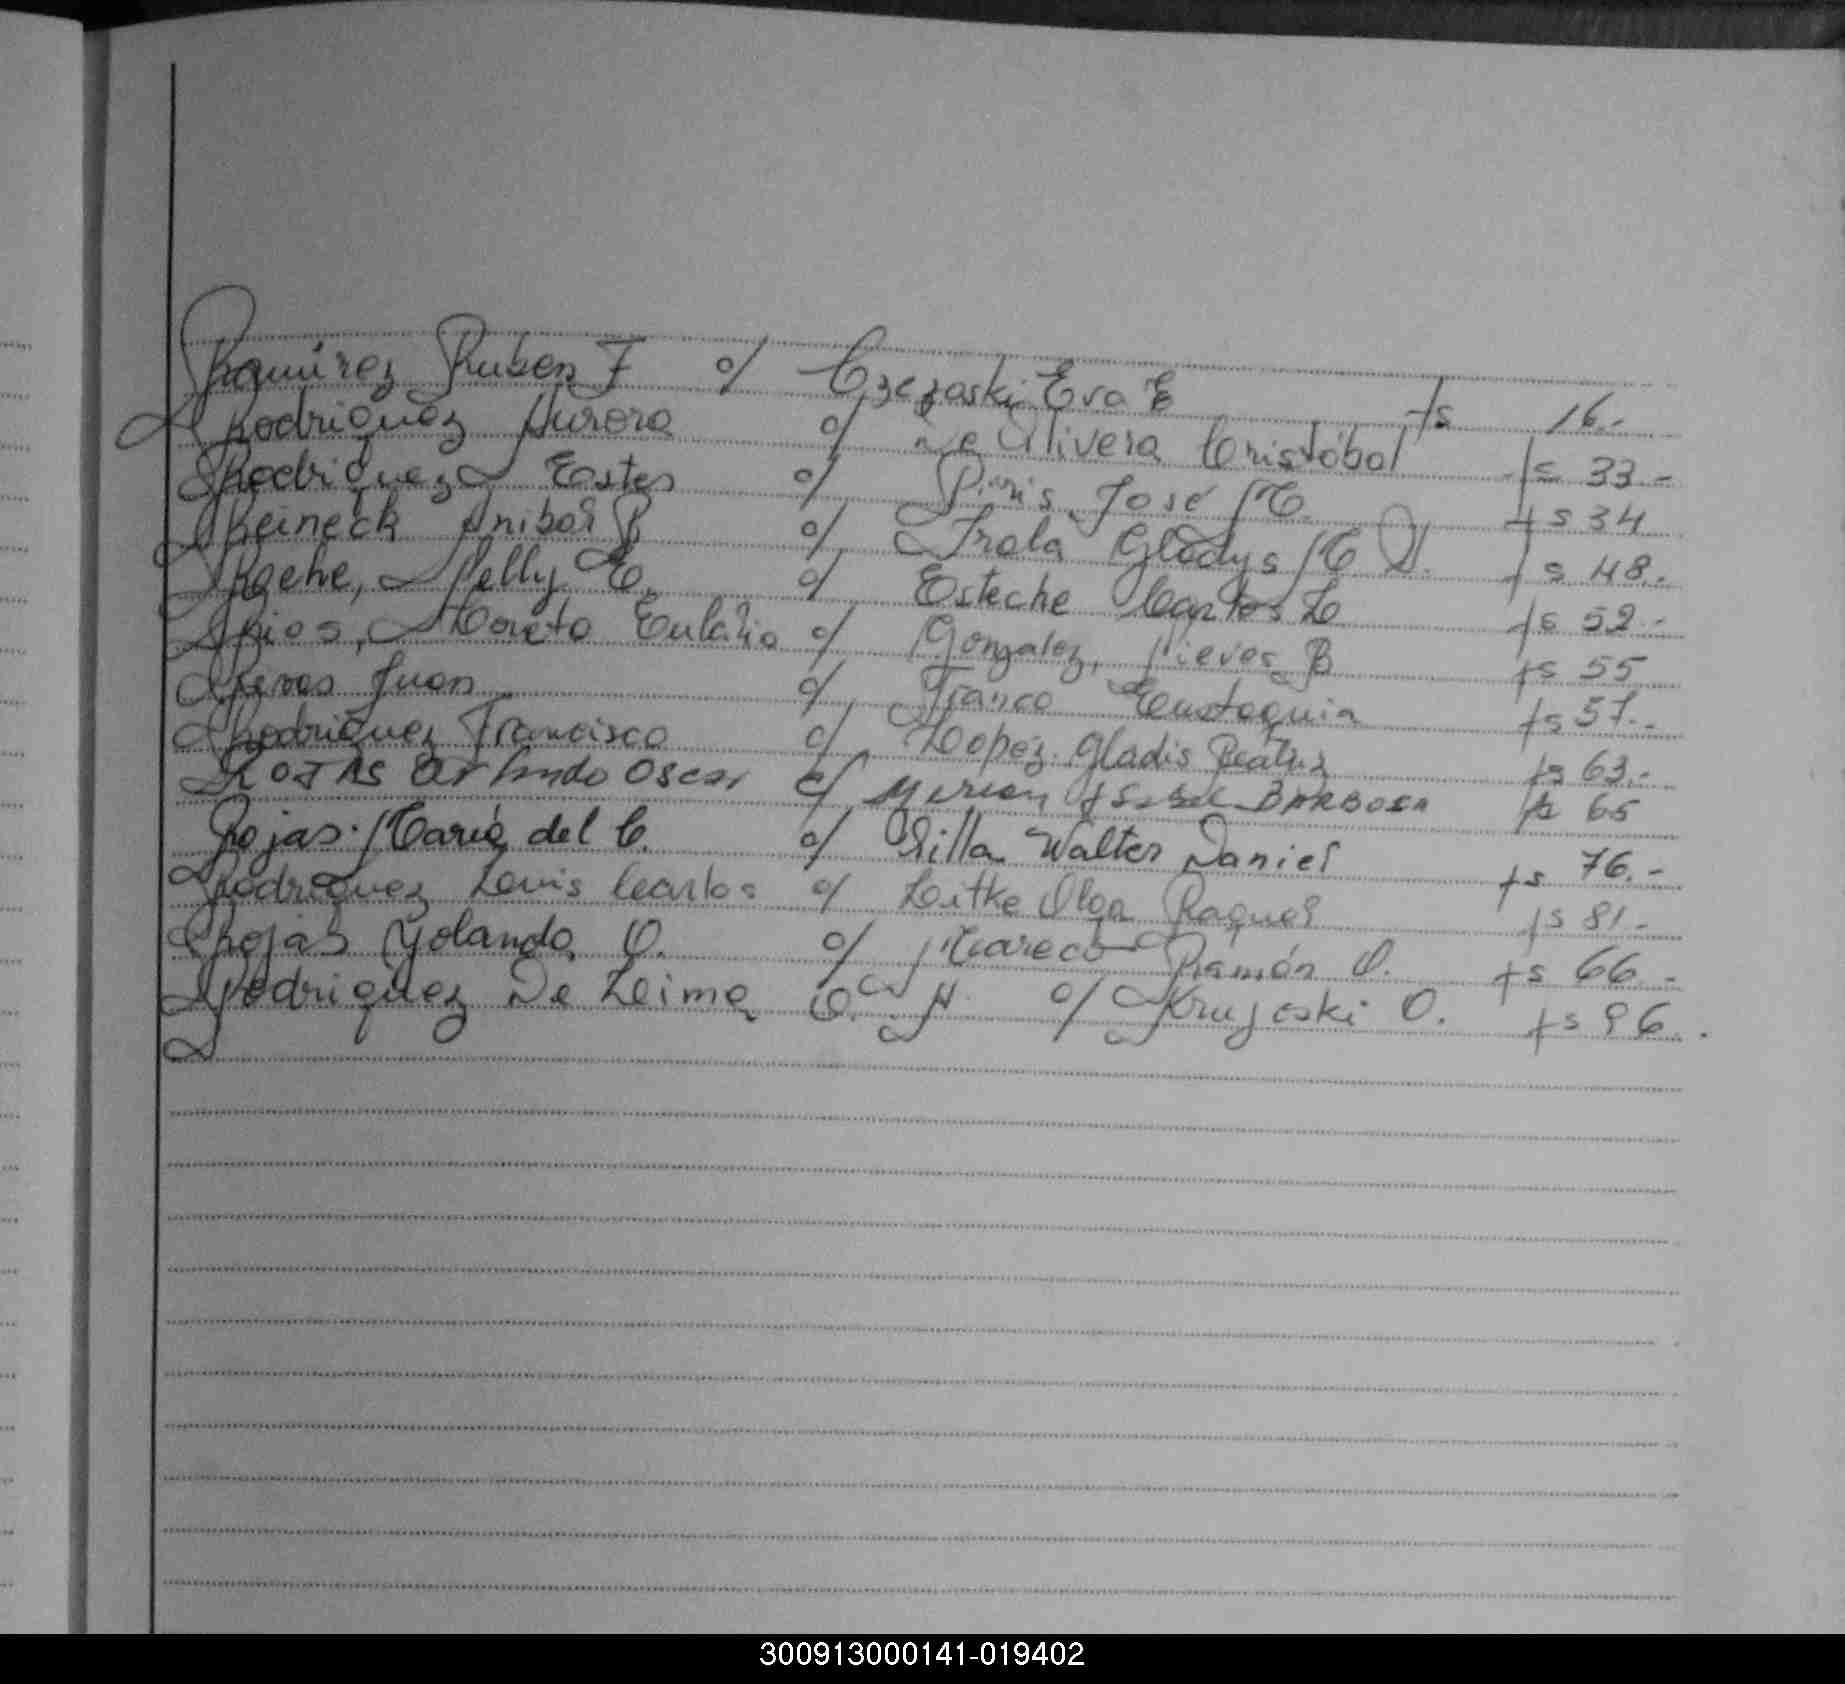 Ramírez Ruben F c/ Czezaski Eva E fs 16.-
Rodriguez Aurora c/ De Olivera Cristóbal fs 33.-
Rodriguez Ester c/ Piris José M. fs 34
Reineck Anibal R c/ Frola Gladys M N. fs 48.-
Roche, Nelly E. c/ Esteche Carlos L fs 52.-
Rios, Loreto Eulalio c/ Gonzalez, Nieves B fs 55
Juan c/ Franco Eustaquia fs 57.-
Rodriguez Francisco c/ Lopez Gladis Beatriz fs 63.-
ROJAS Armando Oscar c/ Mirian Isabel BARBOSA fs 65
Rojas María del C. c/ Villa Walter Daniel fs 76.-
Rodriguez Louis Carlos c/ Litke Olga Raquel fs 81.-
Rojas Yolanda O. c/ Mareco Ramón O. fs 66.-
Rodriguez De Lima O. A. c/ O. fs 96.
300913000141-019402